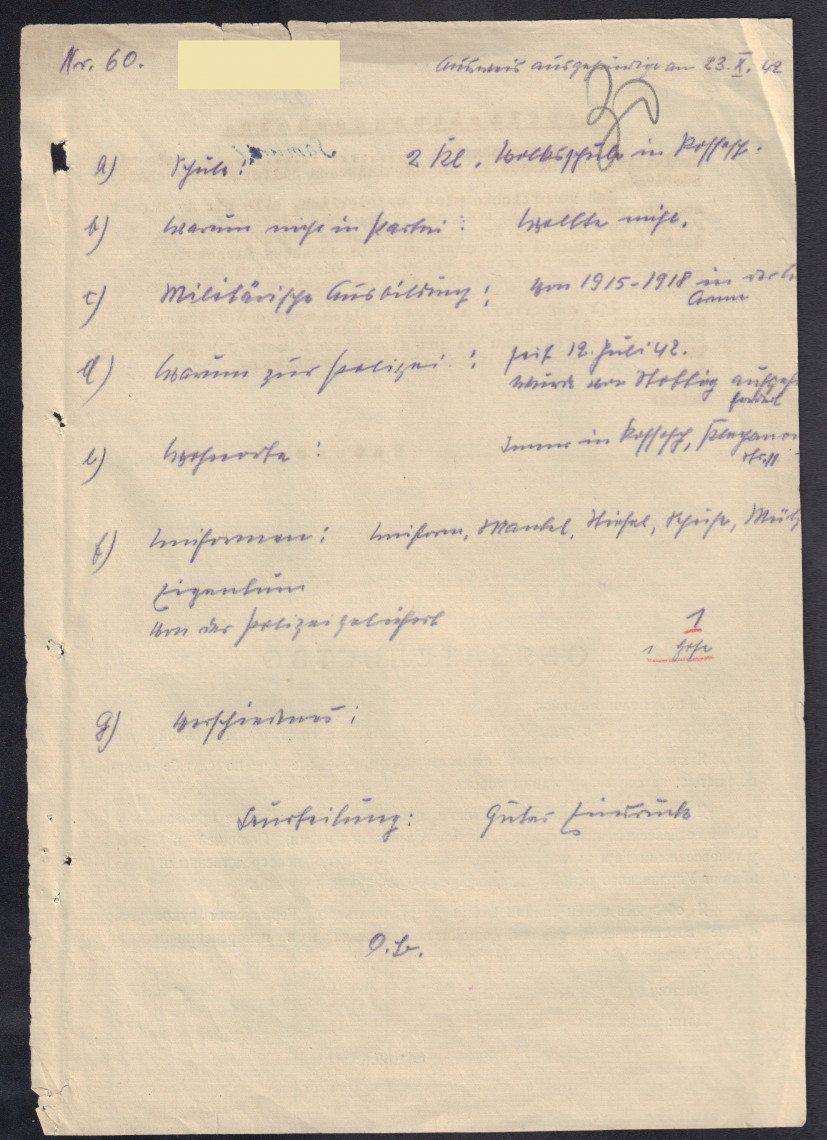 Nr. 60.
Ausweis ausgehändigt am 23. X. 42
30
a) Schule: 2 Kl. Volksschule in Rossosch.
b) Warum nicht in Partei: Wollte nicht.
c) Militärische Ausbildung: Von 1915-1918 in der
Armee
d) Warum zur Polizei: seit 12. Juli 42.
Wurde von aufgef
fordert
e) Wohnorte: Immer in Rossosch,
f) Uniformen: Uniform, Mantel, Stiefel, Schuhe, Mütz
Eigentum
Von der Polizei geliefert 1
1 Hose
g) Verschiedenes:
Beurteilung: Guter Eindruck